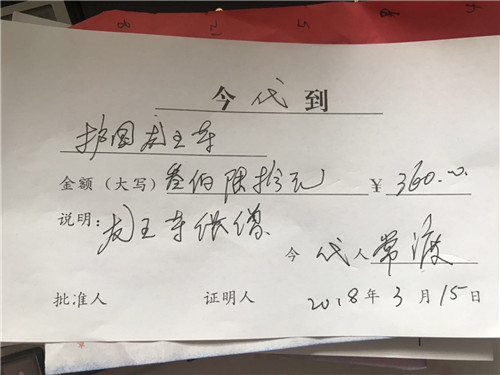 今代到
护国龙王寺
金额（大写）叁佰陆拾元 ￥360.00
说明：龙王寺供僧
今代人常渡
批准人 证明人 2018年3月15日